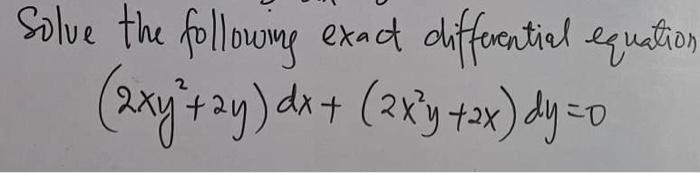 Solve the following exact differential equation
(2xy²+2y) dx + (2x²y+2x) dy=0